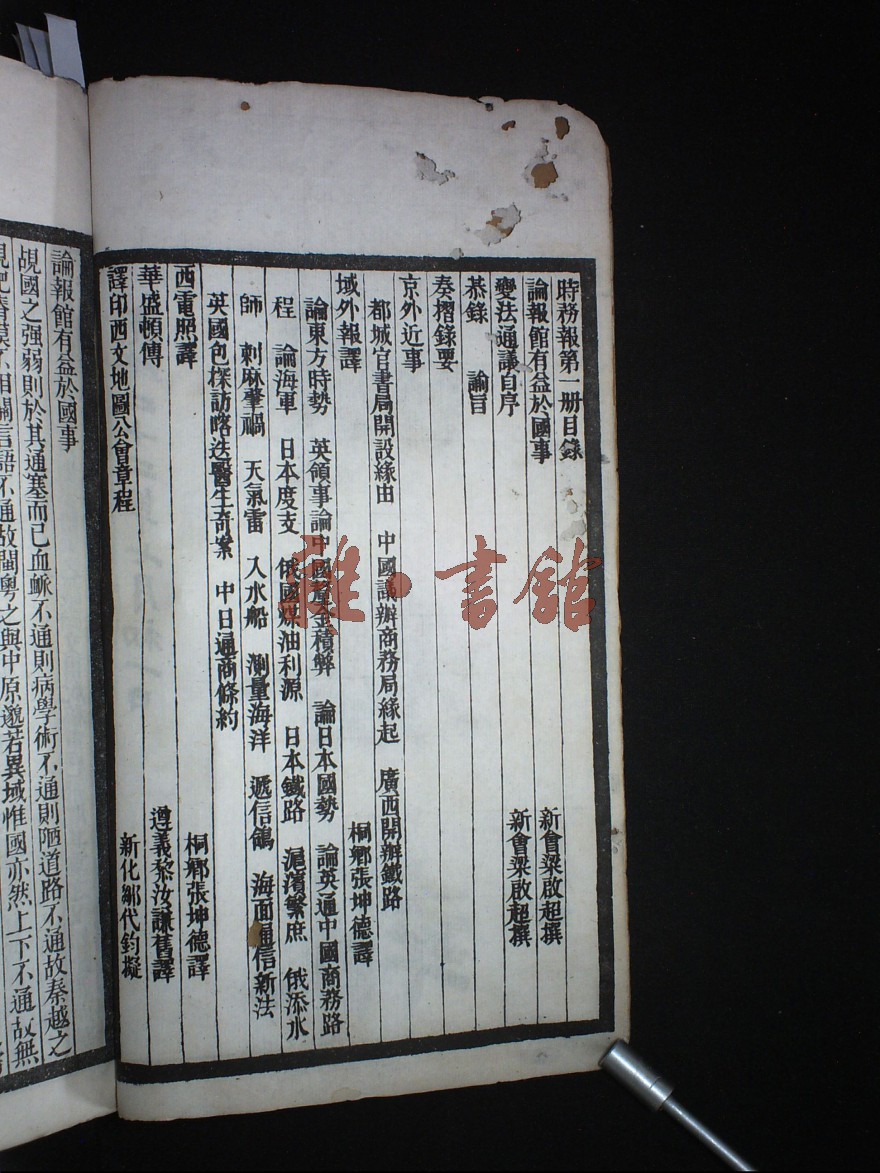 時務報第一册目錄
論報館有益於國事 新會梁啟超撰
變法通議自序 新會梁啟超撰
恭錄 諭旨
奏摺錄要
京外近事
都城官書局開設緣由 中國議辦商務局緣起 廣西開辦鐵路
域外報譯 桐鄉張坤德譯
論東方時勢 英領事論中國釐金積弊 論日本國勢 論英通中國商務路
程 論海軍 日本度支 俄國煤油利源 日本鐵路 滬濱繁庶 俄添水
師 刺麻肇禍 天氣雷 入水船 測量海洋 遞信鴿 海面通信新法
英國包探訪喀迭醫生奇案 中日通商條約
西電照譯 桐鄉張坤德譯
華盛頓傳 遵義黎汝謙舊譯
譯印西文地圖公會章程 新化鄒代鈞擬
論報館有益於國事
覘國之强弱則於其通塞而已血脈不通則病學術不通則陋道路不通故秦越之
視肥瘠漠不相關言語不通故閩粵之與中原邈若異域惟國亦然上下不通故無
雜·書館